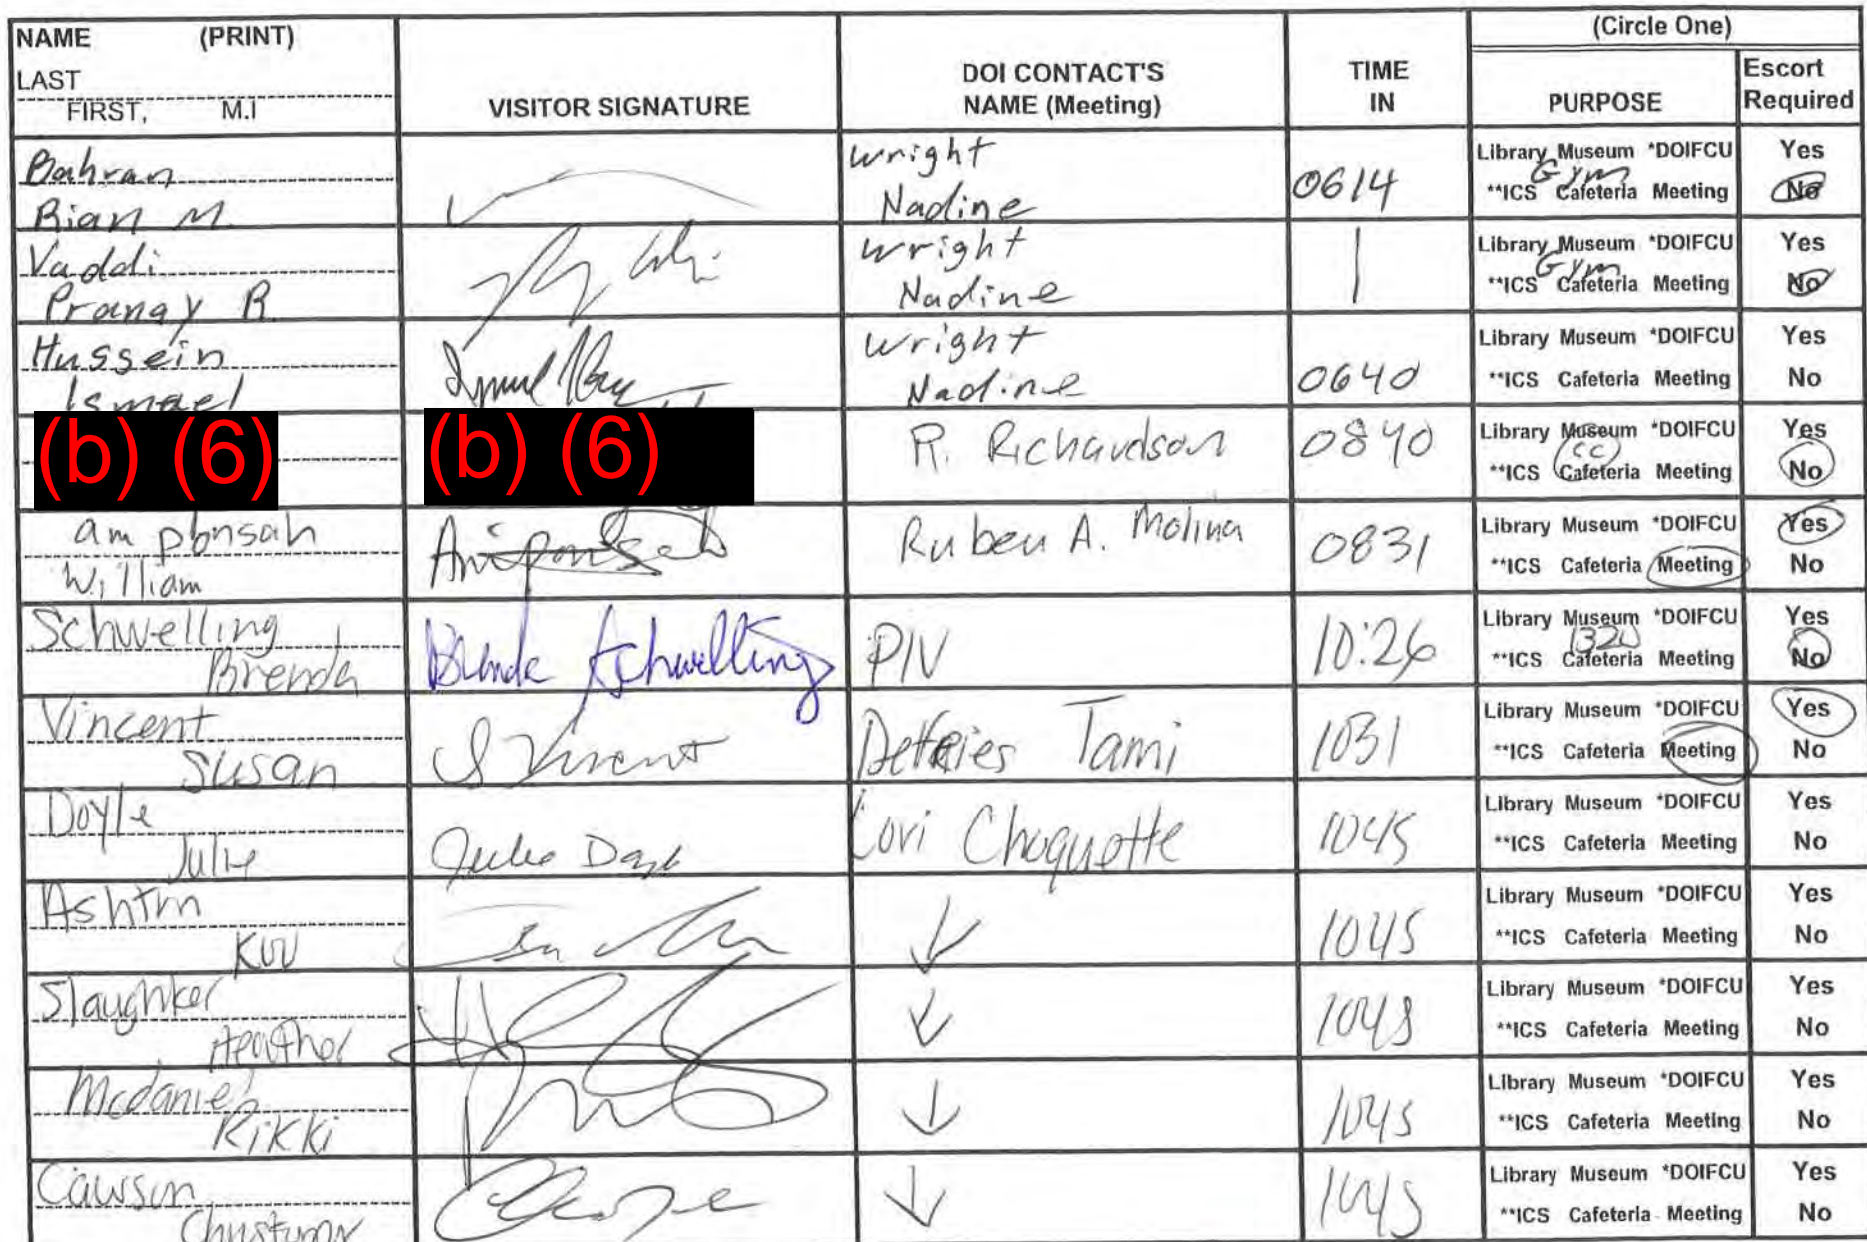 NAME (PRINT)
LAST
FIRST, M.I
VISITOR SIGNATURE
DOI CONTACT'S
NAME (Meeting)
TIME
IN
(Circle One)
PURPOSE
Escort
Required
Bahran
Rian M.
Wright
Nadine
0614
Library Museum *DOIFCU
Gym
**ICS Cafeteria Meeting
Yes
No
Vaddi
Pranay R.
Wright
Nadine
|
Library Museum *DOIFCU
Gym
**ICS Cafeteria Meeting
Yes
No
Hussein
Ismael
Wright
Nadine
0640
Library Museum *DOIFCU
**ICS Cafeteria Meeting
Yes
No
(b) (6)
(b) (6)
R. Richardson
0840
Library Museum *DOIFCU
CC
**ICS Cafeteria Meeting
Yes
No
amponsah
William
Amponsah
Ruben A. Molina
0831
Library Museum *DOIFCU
**ICS Cafeteria Meeting
Yes
No
Schwelling
Brenda
Brenda Schwelling
PIV
10:26
Library Museum *DOIFCU
1320
**ICS Cafeteria Meeting
Yes
No
Vincent
Susan
S Vincent
Defries Tami
1031
Library Museum *DOIFCU
**ICS Cafeteria Meeting
Yes
No
Doyle
Julie
Julie Doyle
Lori Choquette
1045
Library Museum *DOIFCU
**ICS Cafeteria Meeting
Yes
No
Ashtm
↓
1045
Library Museum *DOIFCU
**ICS Cafeteria Meeting
Yes
No
Slaughter
Heather
↓
1045
Library Museum *DOIFCU
**ICS Cafeteria Meeting
Yes
No
Mcdaniel
Rikki
↓
1045
Library Museum *DOIFCU
**ICS Cafeteria Meeting
Yes
No
↓
1045
Library Museum *DOIFCU
**ICS Cafeteria Meeting
Yes
No